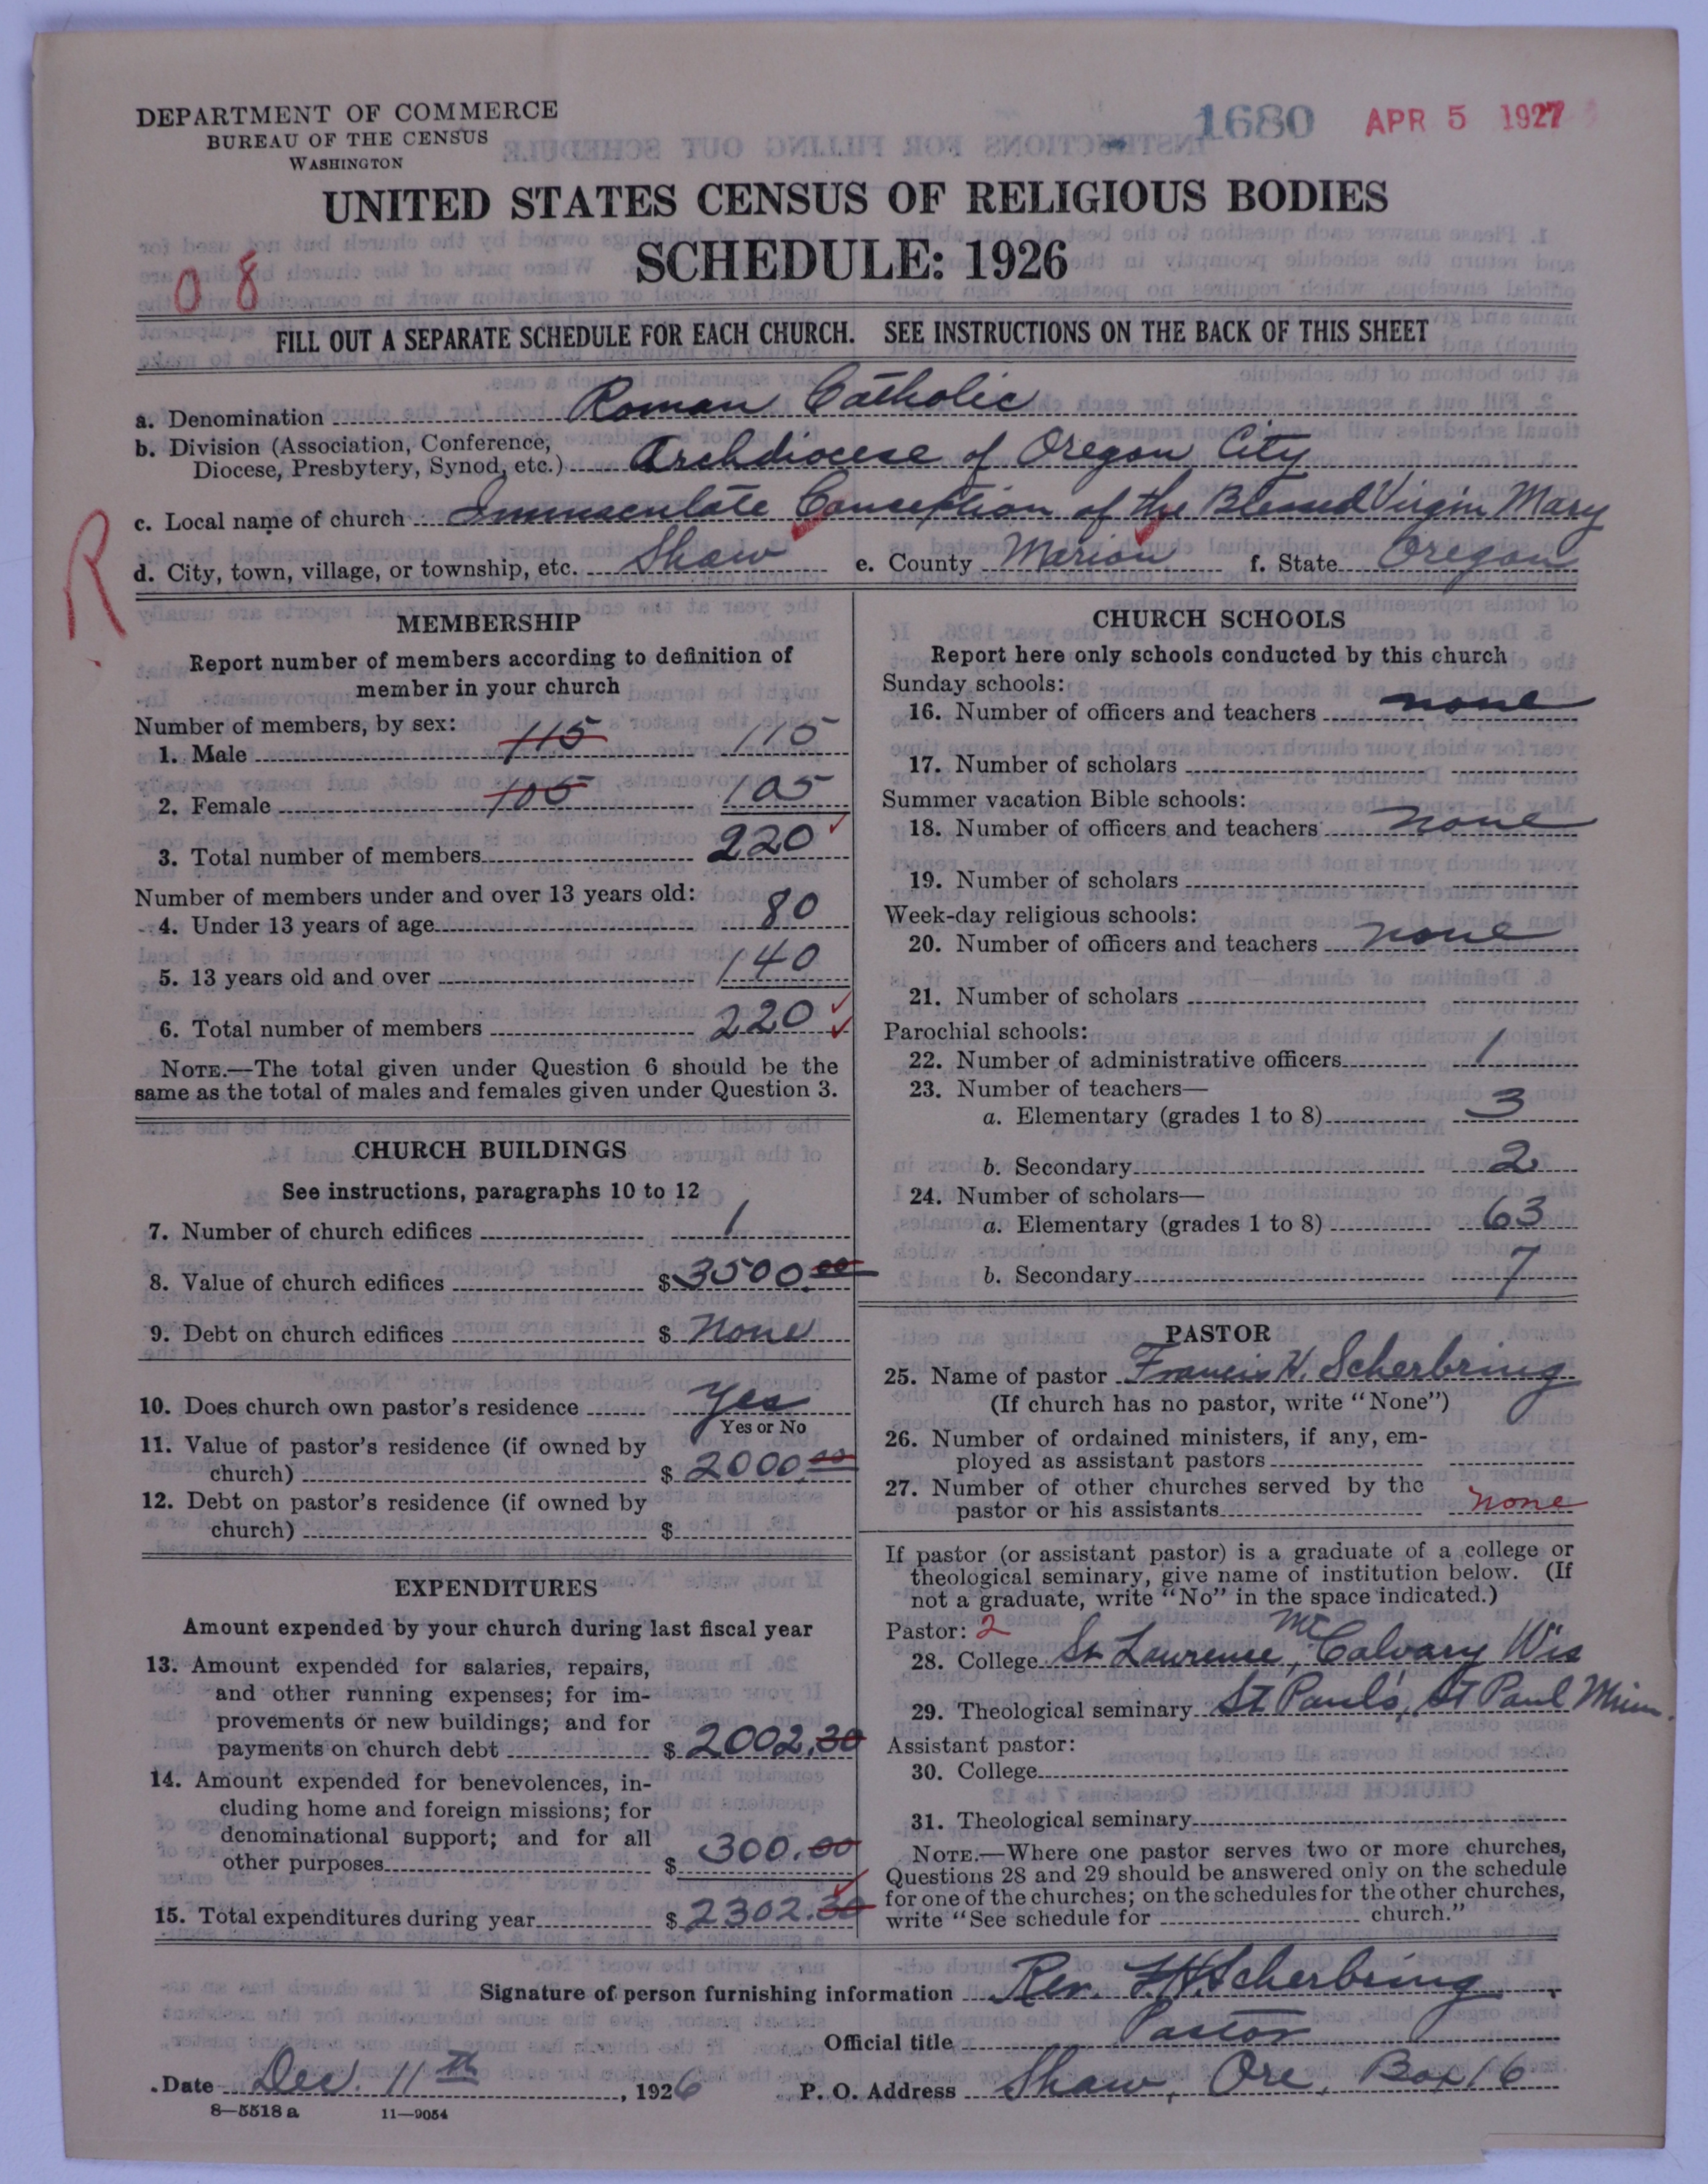 DEPARTMENT OF COMMERCE
BUREAU OF THE CENSUS
WASHINGTON
1680 APR 5 1927
UNITED STATES CENSUS OF RELIGIOUS BODIES
SCHEDULE: 1926
08
FILL OUT A SEPARATE SCHEDULE FOR EACH CHURCH. SEE INSTRUCTIONS ON THE BACK OF THIS SHEET
a. Denomination Roman Catholic
b. Division (Association, Conference, Diocese, Presbytery, Synod, etc.) Archdiocese of Oregon City
c. Local name of church Immaculate Conception of the Blessed Virgin Mary
R
d. City, town, village, or township, etc. Shaw e. County Marion f. State Oregon
MEMBERSHIP
Report number of members according to definition of
member in your church
Number of members, by sex:
1. Male 115 115
2. Female 105 105
3. Total number of members 220
Number of members under and over 13 years old:
4. Under 13 years of age 80
5. 13 years old and over 140
6. Total number of members 220
NOTE.—The total given under Question 6 should be the
same as the total of males and females given under Question 3.
CHURCH BUILDINGS
See instructions, paragraphs 10 to 12
7. Number of church edifices 1
8. Value of church edifices $3500.00
9. Debt on church edifices $ None
10. Does church own pastor's residence Yes
Yes or No
11. Value of pastor's residence (if owned by
church) $ 2000.00
12. Debt on pastor's residence (if owned by
church) $
EXPENDITURES
Amount expended by your church during last fiscal year
13. Amount expended for salaries, repairs,
and other running expenses; for im-
provements or new buildings; and for
payments on church debt $ 2002.30
14. Amount expended for benevolences, in-
cluding home and foreign missions; for
denominational support; and for all
other purposes $ 300.00
15. Total expenditures during year $ 2302.30
CHURCH SCHOOLS
Report here only schools conducted by this church
Sunday schools:
16. Number of officers and teachers none
17. Number of scholars
Summer vacation Bible schools:
18. Number of officers and teachers none
19. Number of scholars
Week-day religious schools:
20. Number of officers and teachers none
21. Number of scholars
Parochial schools:
22. Number of administrative officers 1
23. Number of teachers—
a. Elementary (grades 1 to 8) 3
b. Secondary 2
24. Number of scholars—
a. Elementary (grades 1 to 8) 63
b. Secondary 7
PASTOR
25. Name of pastor Francis W. Scherbring
(If church has no pastor, write "None")
26. Number of ordained ministers, if any, em-
ployed as assistant pastors
27. Number of other churches served by the
pastor or his assistants none
If pastor (or assistant pastor) is a graduate of a college or
theological seminary, give name of institution below. (If
not a graduate, write "No" in the space indicated.)
Pastor: 2
28. College St Lawrence, Mt Calvary Wis
29. Theological seminary St Paul's, St Paul Minn.
Assistant pastor:
30. College
31. Theological seminary
NOTE.—Where one pastor serves two or more churches,
Questions 28 and 29 should be answered only on the schedule
for one of the churches; on the schedules for the other churches,
write "See schedule for church."
Signature of person furnishing information Rev. F.W. Scherbring
Official title Pastor
Date Dec. 11th, 1926 P. O. Address Shaw, Ore, Box 16
8—5518 a 11—9054